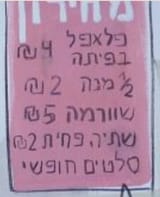 מחירון
פלאפל
בפיתה 4 ₪
½ מנה 2 ₪
שווארמה 5 ₪
שתיה פחית 2 ₪
סלטים חופשי